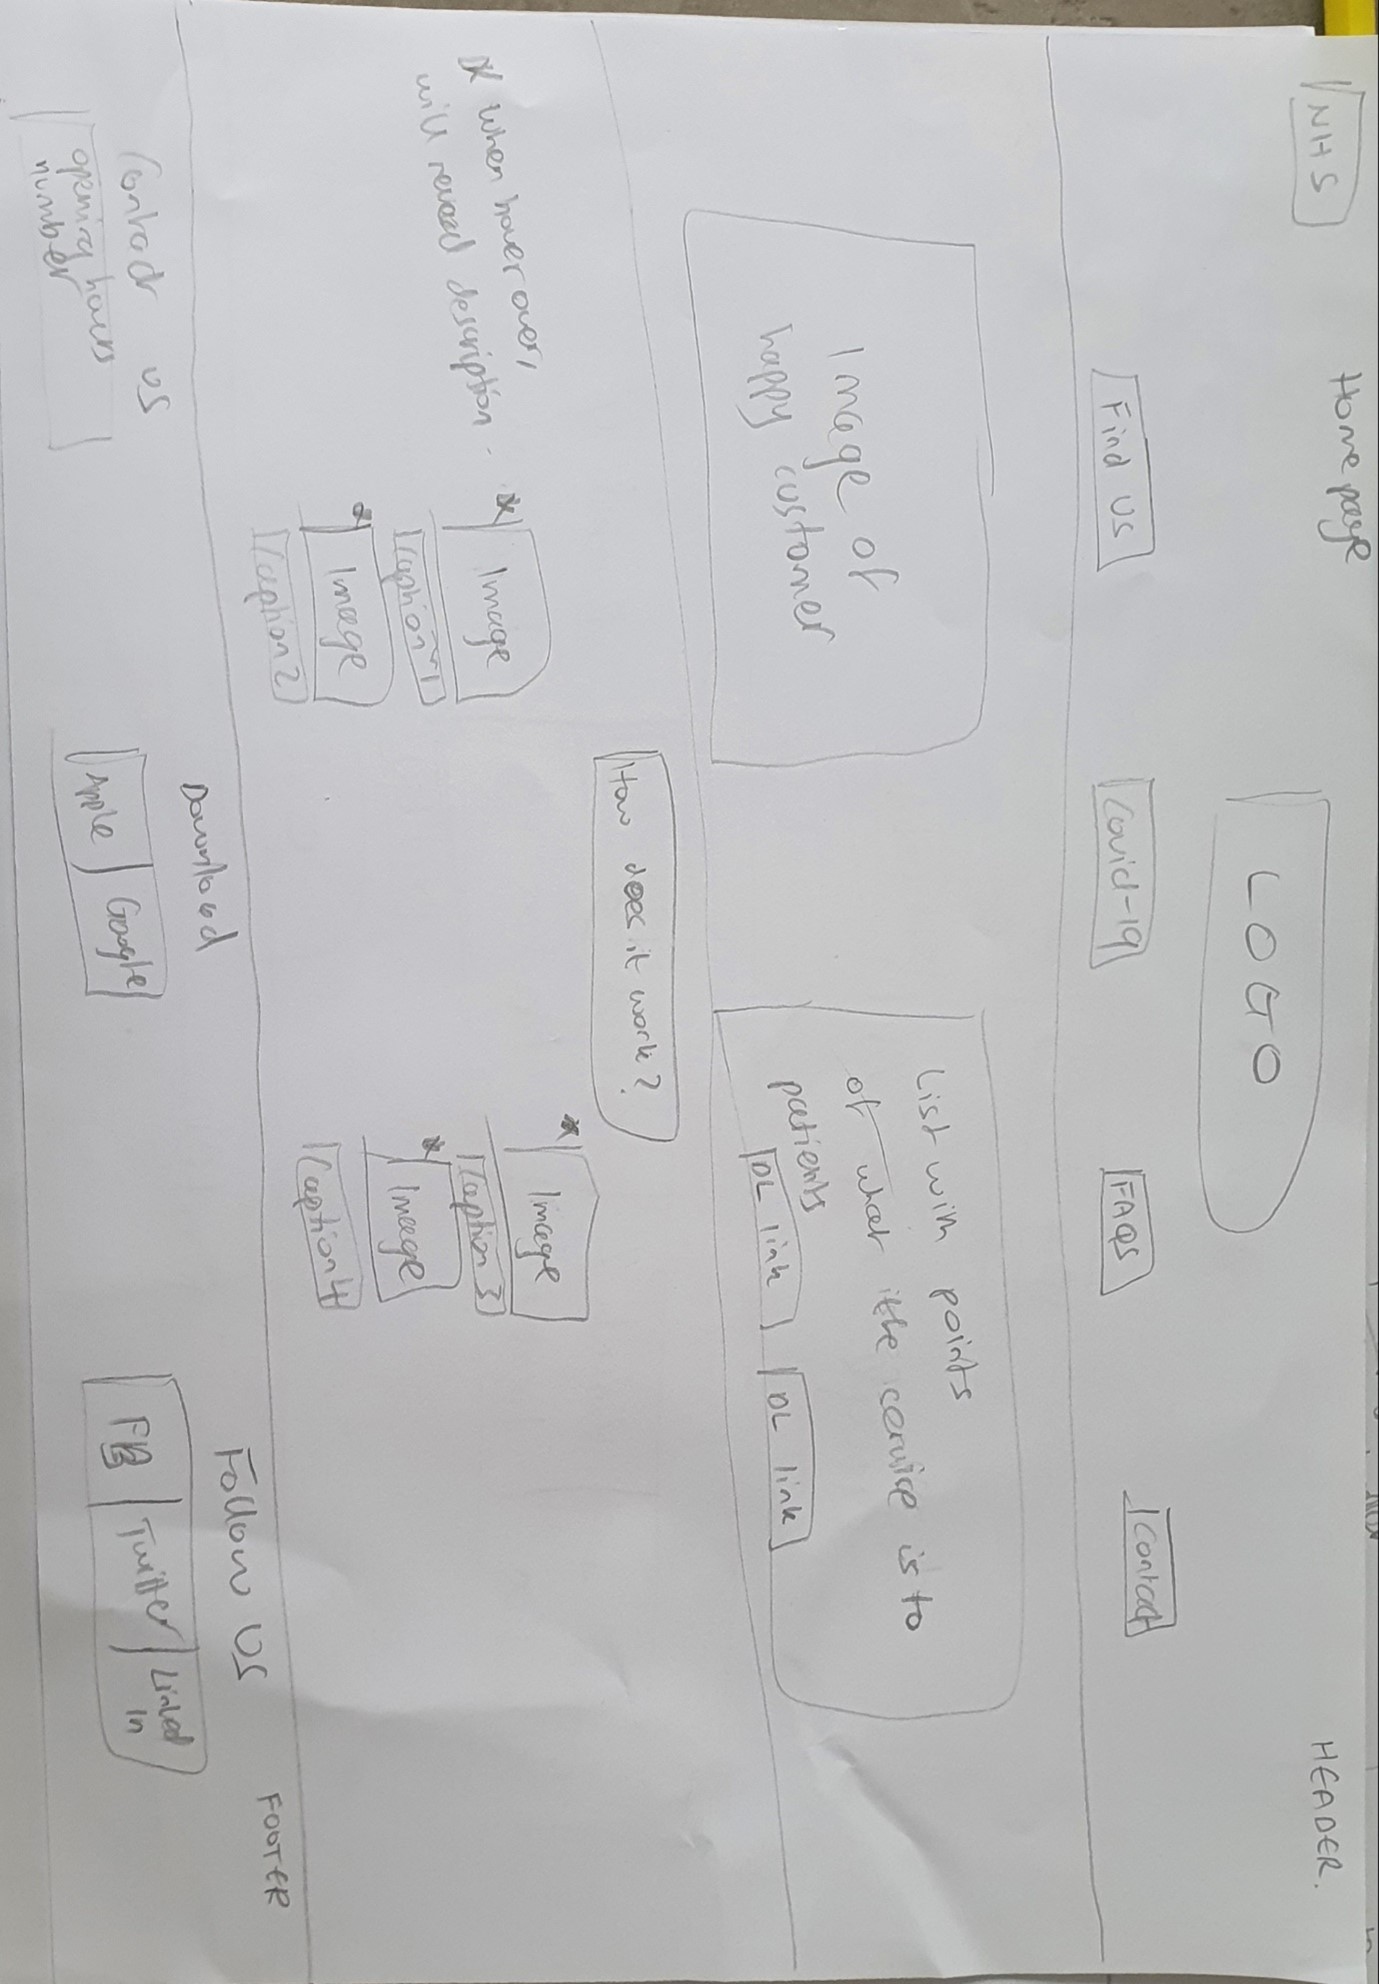 Home page
HEADER.
NHS
LOGO
Find us
Covid-19
FAQs
Contact
Image of
happy customer
List with points
of what the service is to
patients
DL link
DL link
How does it work?
* when hover over,
will reveal description.
* Image
Caption 1
* Image
Caption 2
* Image
Caption 3
* Image
Caption 4
FOOTER
Contact us
opening hours
number
Download
Apple
Google
Follow us
FB
Twitter
Linked
in